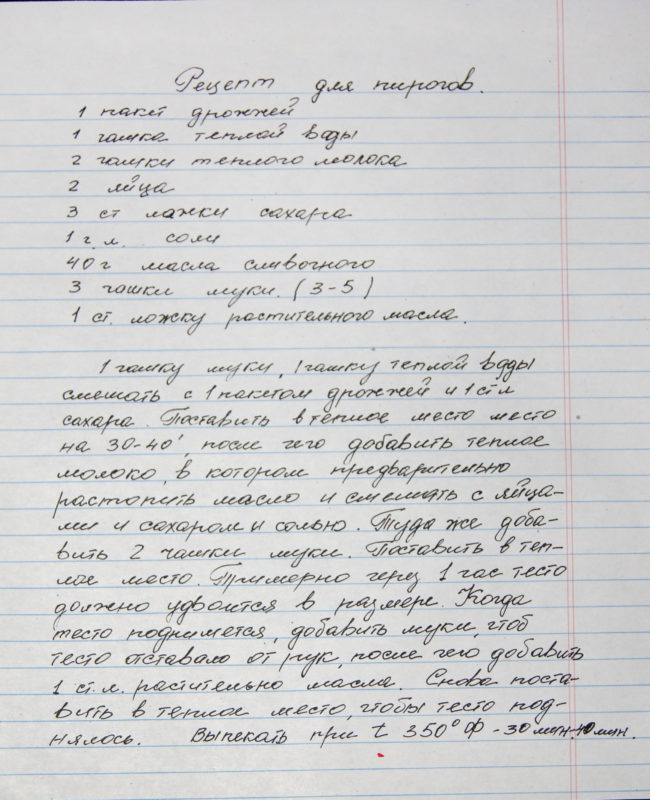 Рецепт для пирогов.
1 пакет дрожжей
1 чашка теплой воды
2 чашки теплого молока
2 яйца
3 ст ложки сахара
1 ч.л. соли
40 г масла сливочного
3 чашки муки. (3-5)
1 ст. ложку растительного масла.
1 чашку муки, 1 чашку теплой воды
смешать с 1 пакетом дрожжей и 1 ст л
сахара. Поставить в теплое место место
на 30-40', после чего добавить теплое
молоко, в котором предварительно
растопить масло и смешать с яйца-
ми и сахаром и солью. Туда же доба-
вить 2 чашки муки. Поставить в теп-
лое место. Примерно через 1 час тесто
должно удвоится в размере. Когда
тесто поднимется, добавить муки, чтоб
тесто отставало от рук, после чего добавить
1 ст.л. растительно масла. Снова поста-
вить в теплое место, чтобы тесто под-
нялось. Выпекать при t 350° Ф - 30 мин-40 мин.